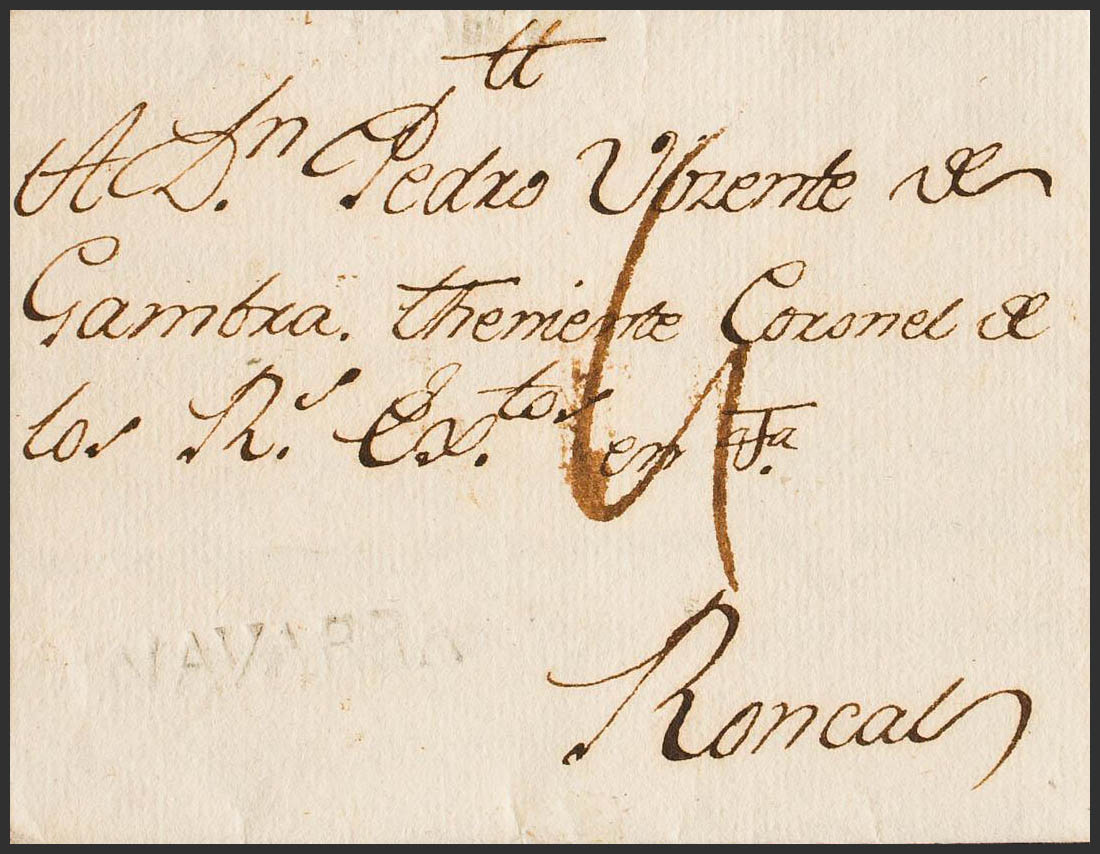 tt
A D.n Pedro Vizente de
Gambra. theniente Coronel de
los R.s Ex.tos en
Roncal